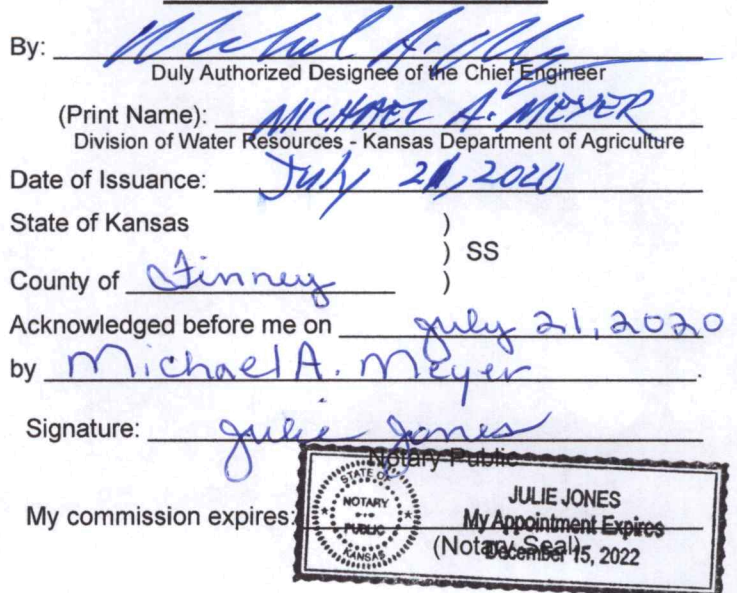 By: Michael A. Meyer
Duly Authorized Designee of the Chief Engineer
(Print Name): MICHAEL A. MEYER
Division of Water Resources - Kansas Department of Agriculture
Date of Issuance: July 21, 2020
State of Kansas )
) SS
County of Finney )
Acknowledged before me on July 21, 2020
by Michael A. Meyer.
Signature: Julie Jones
Notary Public
STATE OF
NOTARY
PUBLIC
KANSAS
JULIE JONES
My Appointment Expires
December 15, 2022
My commission expires:
(Notary Seal)